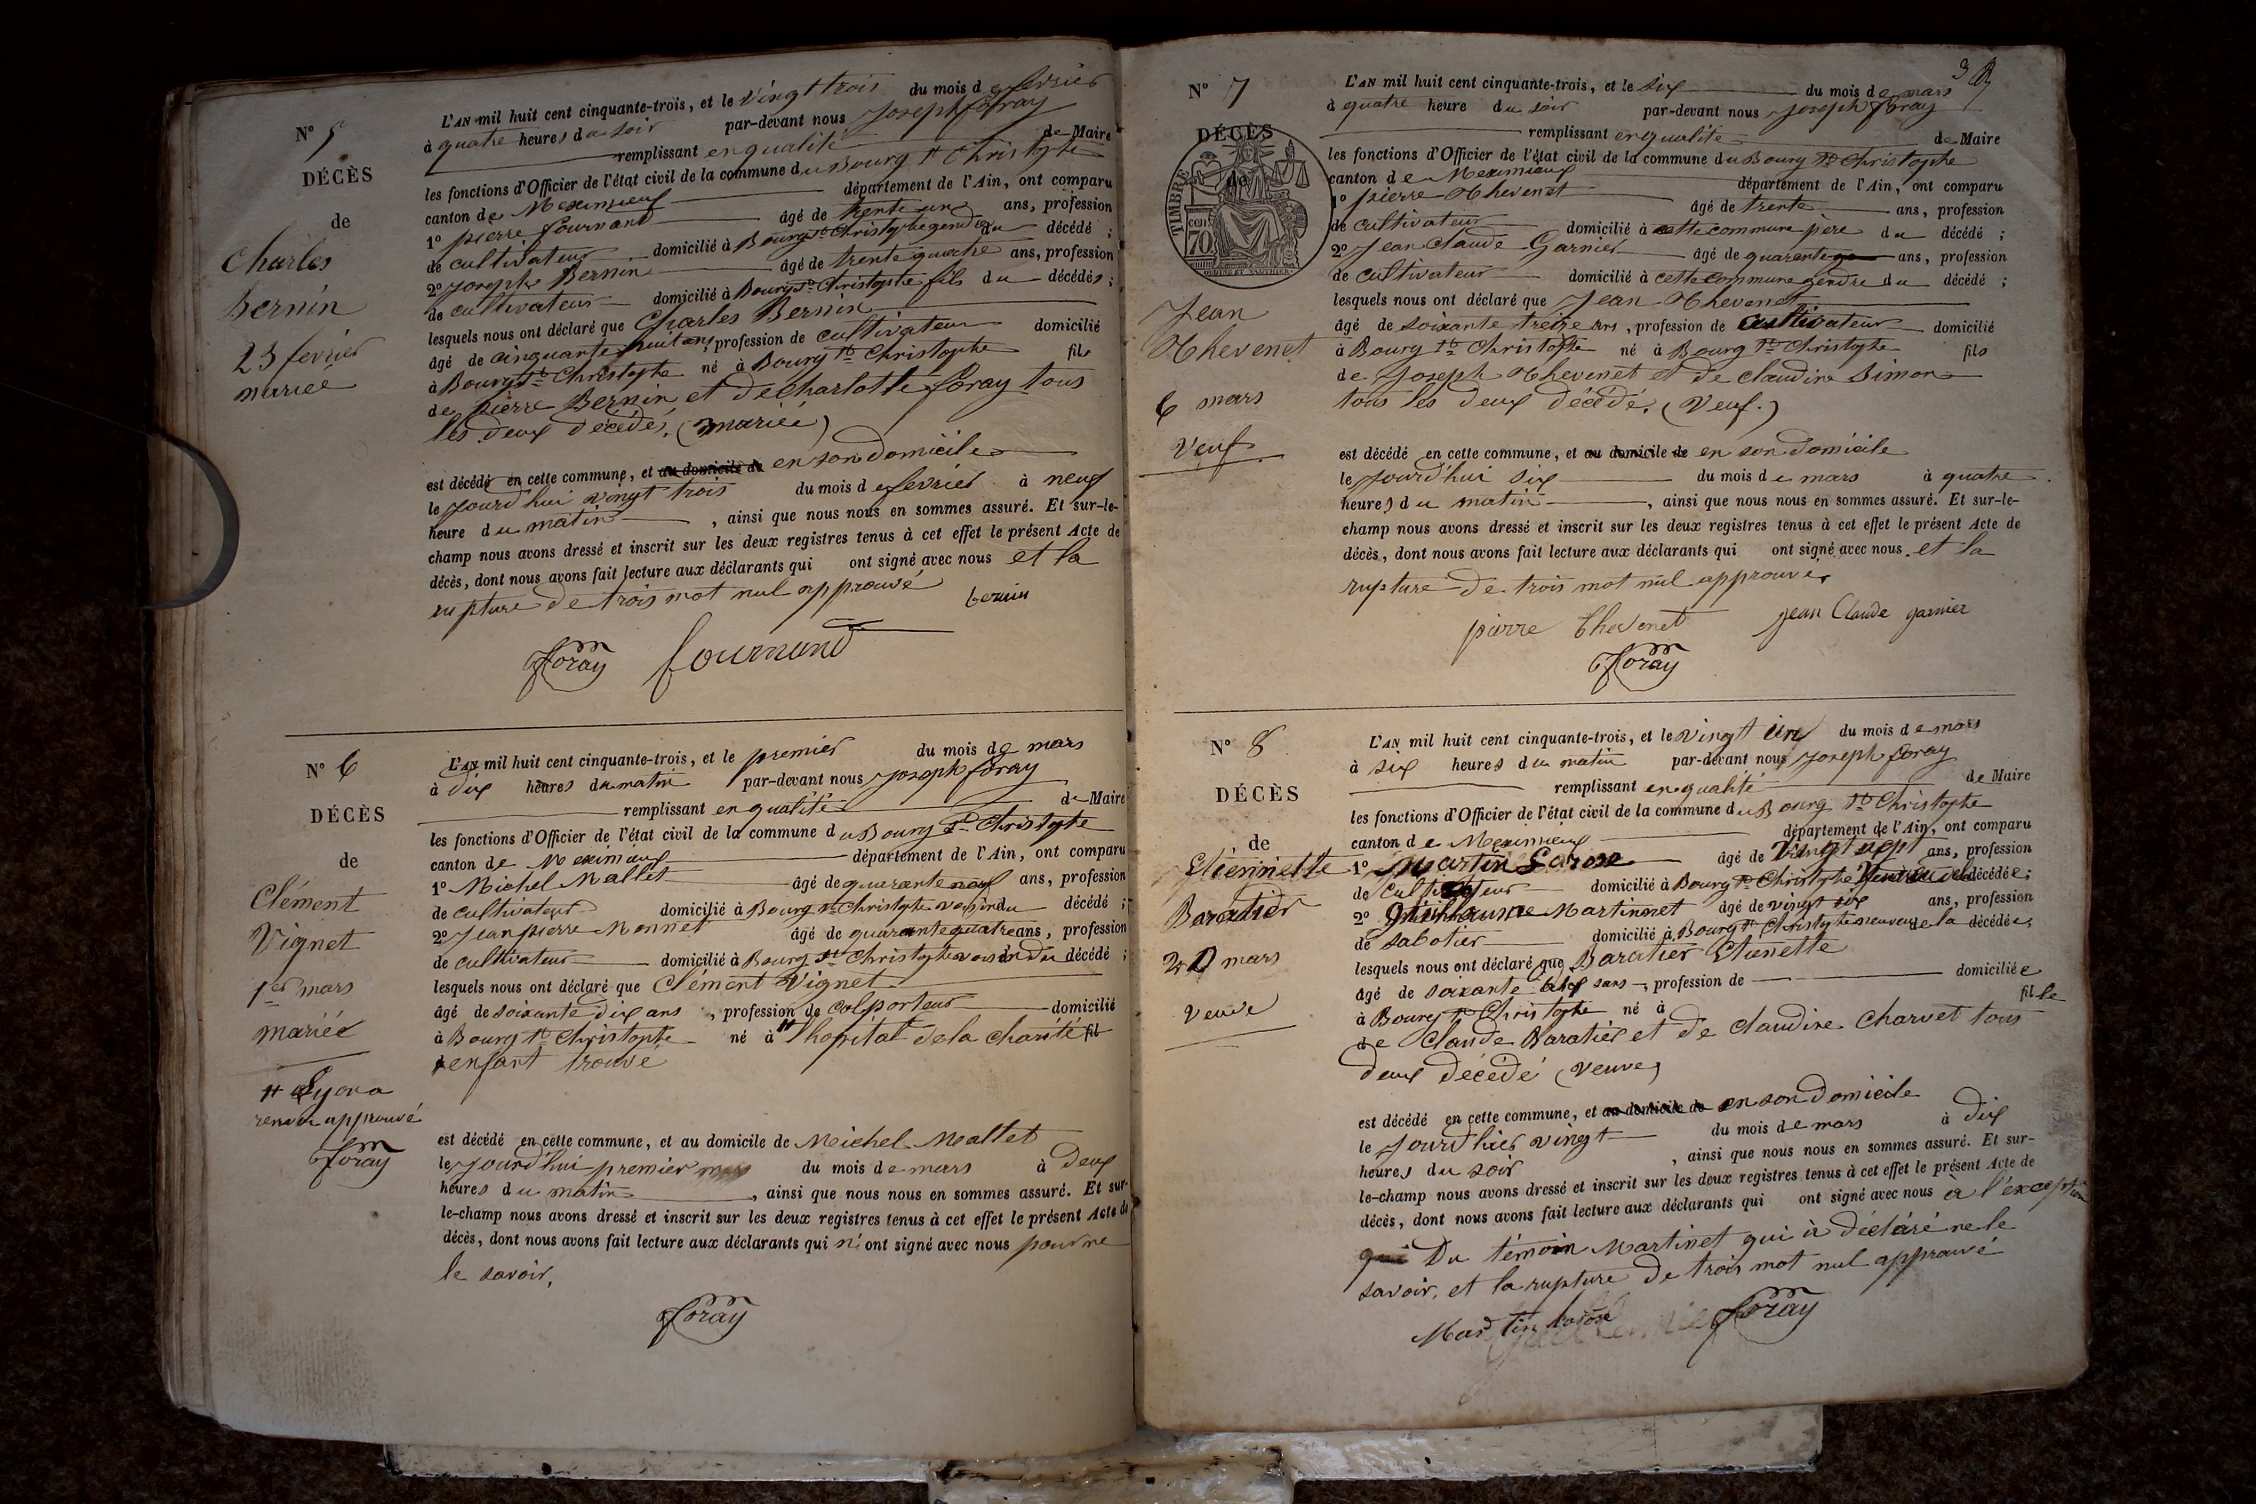 N° 5
DÉCÈS
de
Charles
Bernin
23 fevrier
marieé
L'AN mil huit cent cinquante-trois, et le vingt trois du mois de fevrier
à quatre heures du soir par-devant nous Joseph foray
remplissant en qualité de Maire
les fonctions d'Officier de l'état civil de la commune du Bourg St Christophe
canton de Meximieux département de l'Ain, ont comparu
1° pierre fournand âgé de trente un ans, profession
de cultivateur domicilié à Bourg St Christophe gendre du décédé ;
2° Joseph Bernin âgé de trente quatre ans, profession
de cultivateur domicilié à Bourg St Christophe fils du décédés ;
lesquels nous ont déclaré que Charles Bernin
âgé de cinquante ans, profession de cultivateur domicilié
à Bourg St Christophe né à Bourg St Christophe fils
de pierre Bernin et de Charlotte foray tous
les deux décédés. (mariée)
est décédé en cette commune, et au domicile de en son domicile
le Jourd'hui vingt trois du mois de fevrier à neuf
heure du matin , ainsi que nous nous en sommes assuré. Et sur-le-
champ nous avons dressé et inscrit sur les deux registres tenus à cet effet le présent Acte de
décès, dont nous avons fait lecture aux déclarants qui ont signé avec nous et la
rupture de trois mot nul approuvé
bernin
foray fournand
N° 6
DÉCÈS
de
Clément
Vignet
1er mars
mariée
# Lyon
renvoi approuvé
foray
L'AN mil huit cent cinquante-trois, et le premier du mois de mars
à dix heures du matin par-devant nous Joseph foray
remplissant en qualité de Maire
les fonctions d'Officier de l'état civil de la commune du Bourg St Christophe
canton de Meximieux département de l'Ain, ont comparu
1° Michel Mallet âgé de quarante neuf ans, profession
de cultivateur domicilié à Bourg St Christophe voisin du décédé ;
2° Jean pierre Monnet âgé de quarante quatre ans, profession
de cultivateur domicilié à Bourg St Christophe voisin du décédé ;
lesquels nous ont déclaré que Clément Vignet
âgé de soixante dix ans , profession de colporteur domicilié
à Bourg St Christophe né à # l'hopital de la charité fil
enfant trouvé
est décédé en cette commune, et au domicile de Meichel Mallet
le Jourd'hui premier mars du mois de mars à deux
heures du matin , ainsi que nous nous en sommes assuré. Et sur-
le-champ nous avons dressé et inscrit sur les deux registres tenus à cet effet le présent Acte de
décès, dont nous avons fait lecture aux déclarants qui n'ont signé avec nous pour ne
le savoir.
foray
3
N° 7
DÉCÈS
de
TIMBRE
cen 70
Jean
Thevenet
6 mars
Veuf
L'AN mil huit cent cinquante-trois, et le six du mois de mars
à quatre heure du soir par-devant nous Joseph foray
remplissant en qualité de Maire
les fonctions d'Officier de l'état civil de la commune du Bourg St Christophe
canton de Meximieux département de l'Ain, ont comparu
1° pierre Thevenet âgé de trente ans, profession
de cultivateur domicilié à cette commune père du décédé ;
2° Jean Claude Garnier âgé de quarente ans, profession
de cultivateur domicilié à cette commune gendre du décédé ;
lesquels nous ont déclaré que Jean Thevenet
âgé de soixante treize ans , profession de cultivateur domicilié
à Bourg St Christophe né à Bourg St Christophe fils
de Joseph Thevenet et de claudine Simon
tous les deux décédé. (Veuf.)
est décédé en cette commune, et au domicile de en son domicile
le Jourd'hui six du mois de mars à quatre
heures du matin , ainsi que nous nous en sommes assuré. Et sur-le-
champ nous avons dressé et inscrit sur les deux registres tenus à cet effet le présent Acte de
décès, dont nous avons fait lecture aux déclarants qui ont signé avec nous. et la
rupture de trois mot nul approuvé.
pierre thevenet Jean Claude garnier
foray
N° 8
DÉCÈS
de
Etiennette
Baratier
20 mars
veuve
L'AN mil huit cent cinquante-trois, et le vingt un du mois de mars
à six heures du matin par-devant nous Joseph foray
remplissant en qualité de Maire
les fonctions d'Officier de l'état civil de la commune du Bourg St Christophe
canton de Meximieux département de l'Ain, ont comparu
1° Martin âgé de vingt sept ans, profession
de cultivateur domicilié à Bourg St Christophe décédée ;
2° Guillaume Martinnet âgé de vingt ans, profession
de sabotier domicilié à Bourg St Christophe neveux de la décédée ;
lesquels nous ont déclaré que Baratier Etienette
âgé de soixante ans , profession de domiciliée
à Bourg St Christophe né à fille
de Claude Baratier et de claudine Charvet tous
deux décédé (veuve)
est décédé en cette commune, et au domicile de en son domicile
le Jourd'hier vingt du mois de mars à dix
heures du soir , ainsi que nous nous en sommes assuré. Et sur-
le-champ nous avons dressé et inscrit sur les deux registres tenus à cet effet le présent Acte de
décès, dont nous avons fait lecture aux déclarants qui ont signé avec nous à l'exception
que Du témoin Martinet qui à déclaré ne le
savoir. et la rupture de trois mot nul approuvé
Martin foray